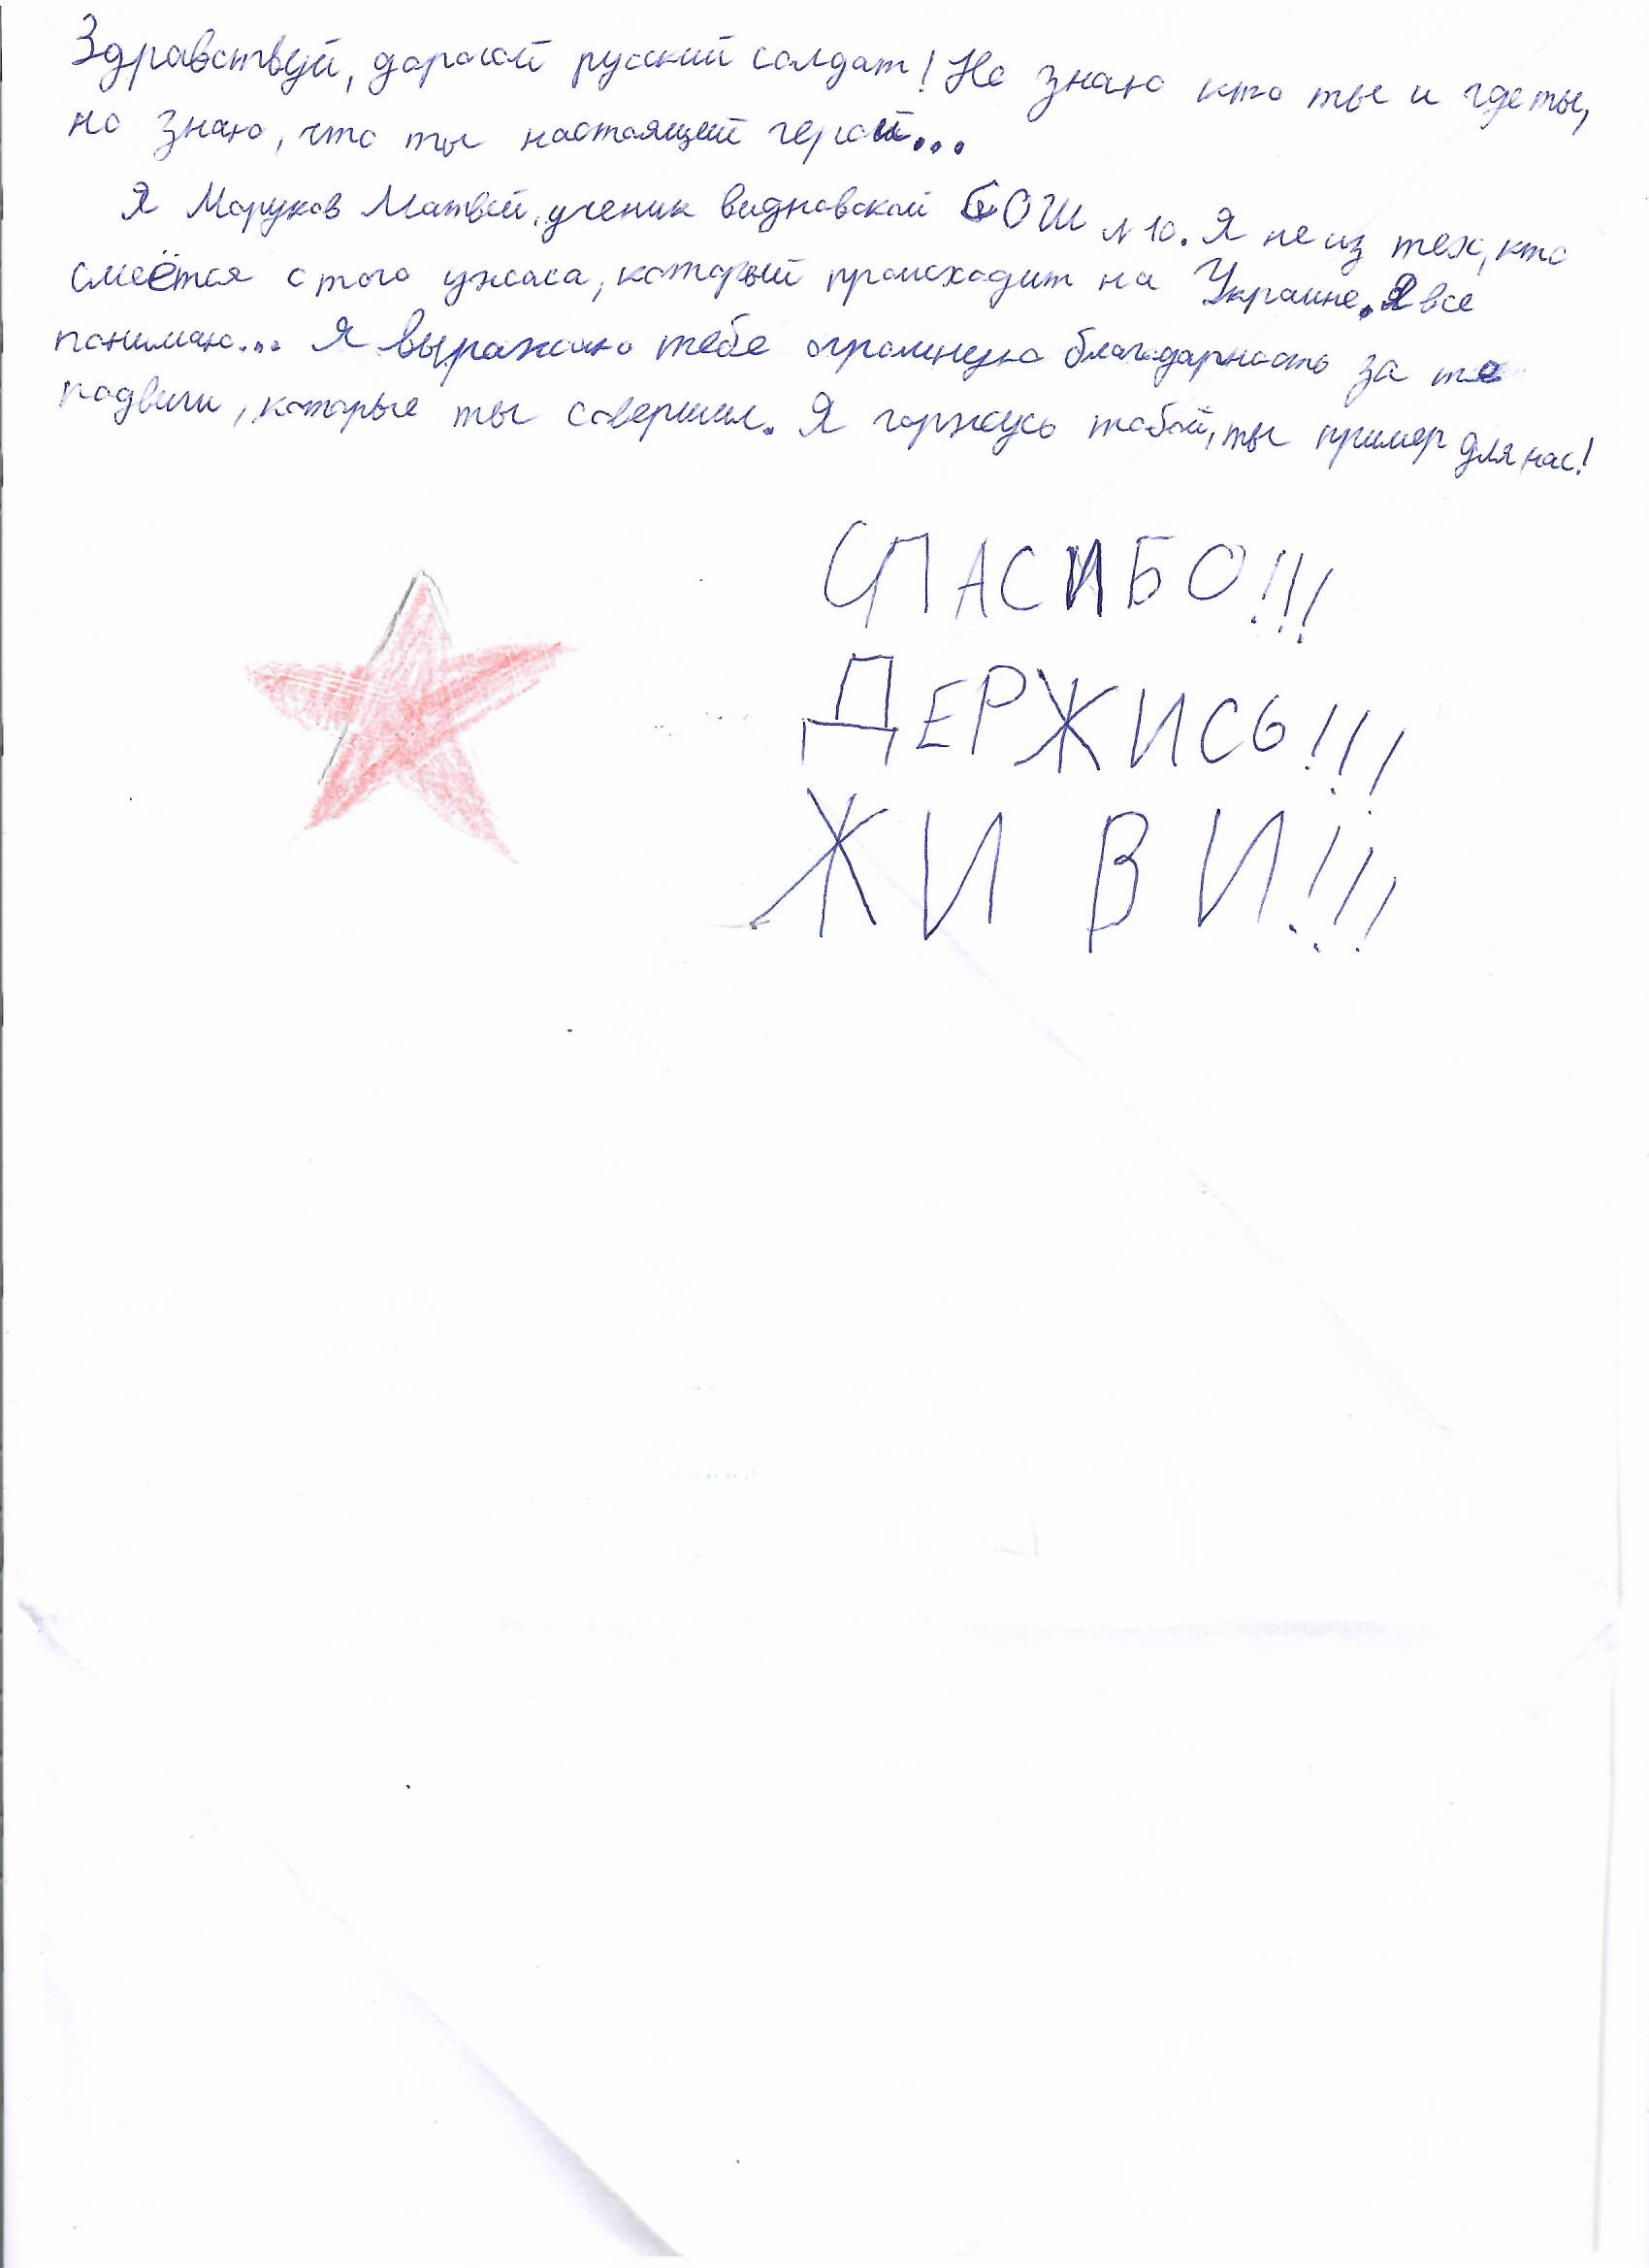 Здравствуй, дорогой русский солдат! Не знаю кто ты и где ты,
но знаю, что ты настоящий герой...
Я Моруков Матвей, ученик видновской СОШ №10. Я не из тех, кто
смеётся с того ужаса, который происходит на Украине. Я все
понимаю... Я выражаю тебе огромную благодарность за те
подвиги, которые ты совершил. Я горжусь тобой, ты пример для нас!
СПАСИБО!!!
ДЕРЖИСЬ!!!
ЖИВИ!!!